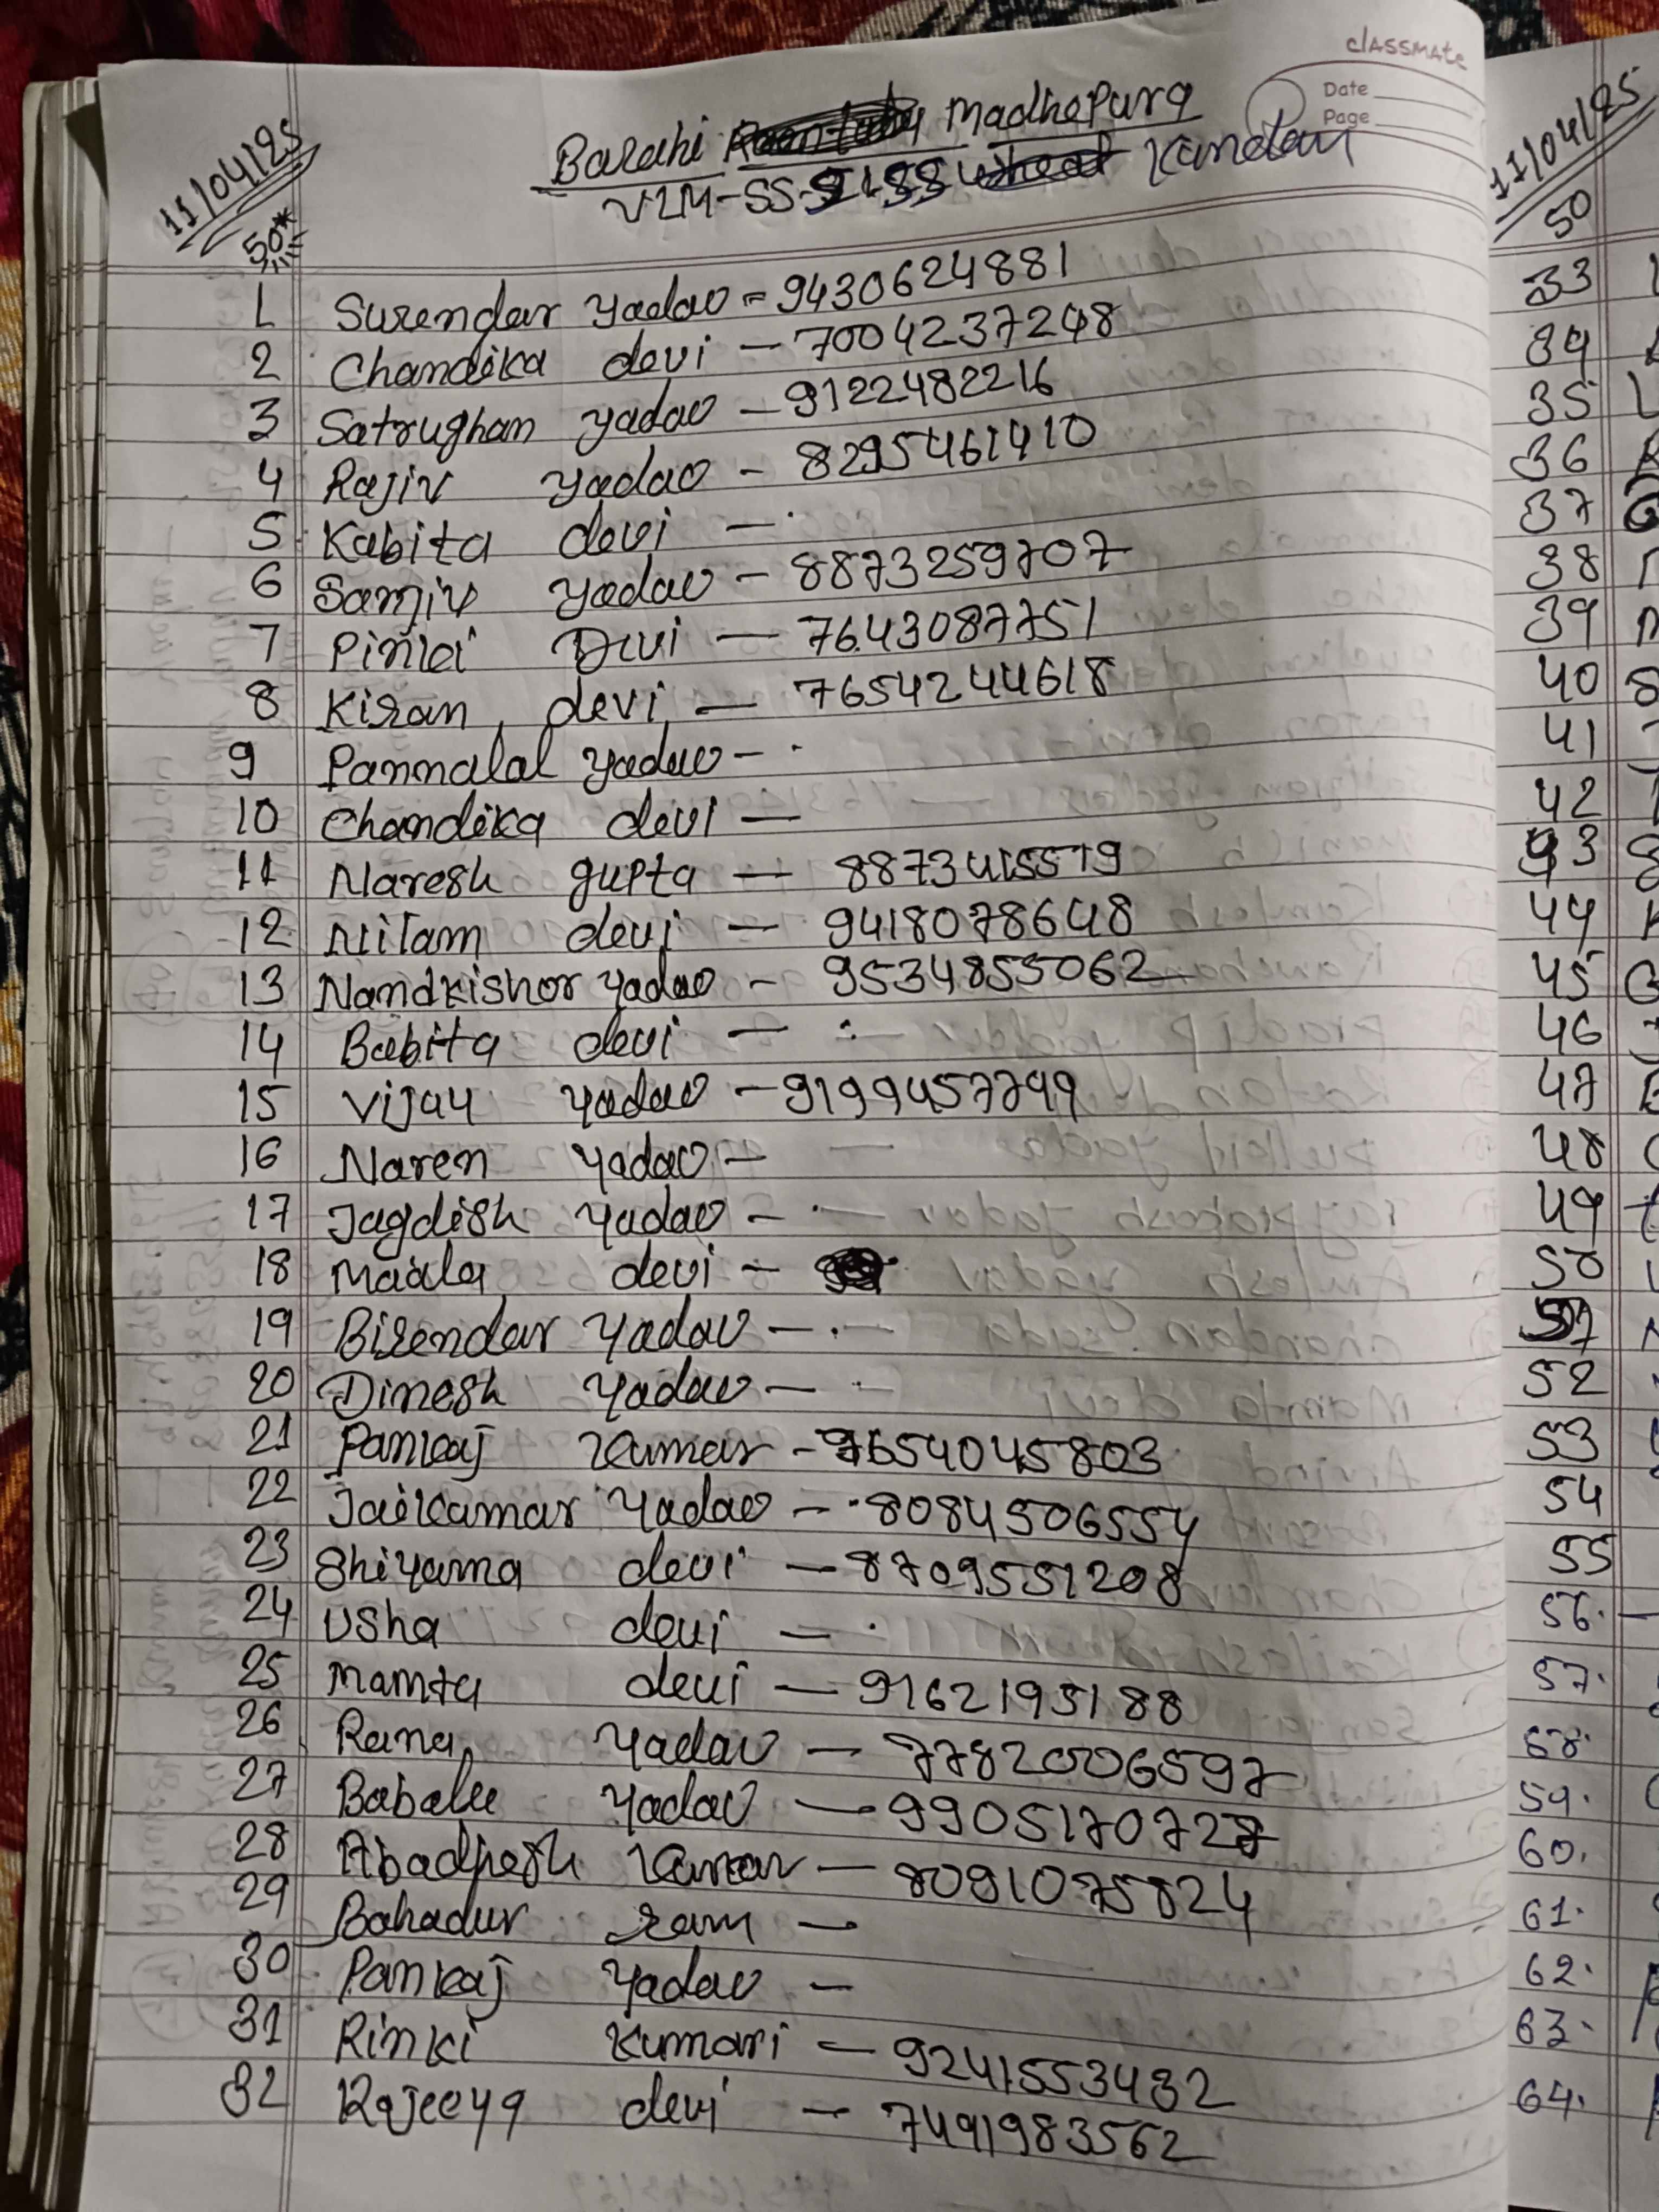 classmate
Date
Page
11/04/25
50
Barahi Madhepura
VLM-SS-2188 Kundan
1 Surendar yadav = 9430624881
2 Chandika devi - 7004237248
3 Satrughan yadav - 9122482216
4 Rajiv yadav - 8295461410
5 Kabita devi -
6 Sanjiv yadav - 8873259707
7 Pinki Devi - 7643087751
8 Kiran devi - 7654244618
9 Pannalal yadav -
10 Chandika devi -
11 Naresh gupta - 8873415519
12 Nilam devi - 9418078648
13 Nandkishor yadav - 9534855062
14 Babita devi -
15 Vijay yadav - 9199457799
16 Naren yadav -
17 Jagdish yadav -
18 Maala devi -
19 Birendar yadav -
20 Dinesh yadav -
21 Pankaj Kumar - 7654045803
22 Jaikumar Yadav - 8084506554
23 Shiyama devi - 8709551208
24 Usha devi -
25 Mamta devi - 9162195188
26 Rana yadav - 7782006597
27 Babalu yadav - 9905170727
28 Abadhesh Kumar - 8091075824
29 Bahadur ram -
30 Pankaj yadav -
31 Rinki Kumari - 9241553432
32 Rajeeya devi - 7491983562
11/04/25
50
33
34
35
36
37
38
39
40
41
42
43
44
45
46
47
48
49
50
51
52
53
54
55
56.
57.
58.
59.
60.
61.
62.
63.
64.